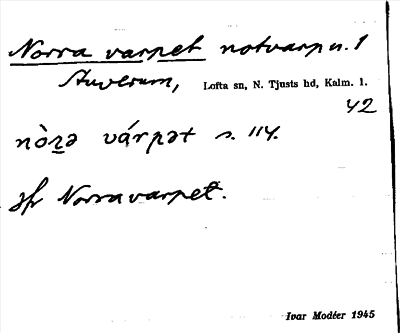 Norra varpet notvarp n. 1
Stuverum, Lofta sn, N. Tjusts hd, Kalm. l.
42
nòṟə várpət s. 114.
jfr Norravarpet.
Ivar Modéer 1945